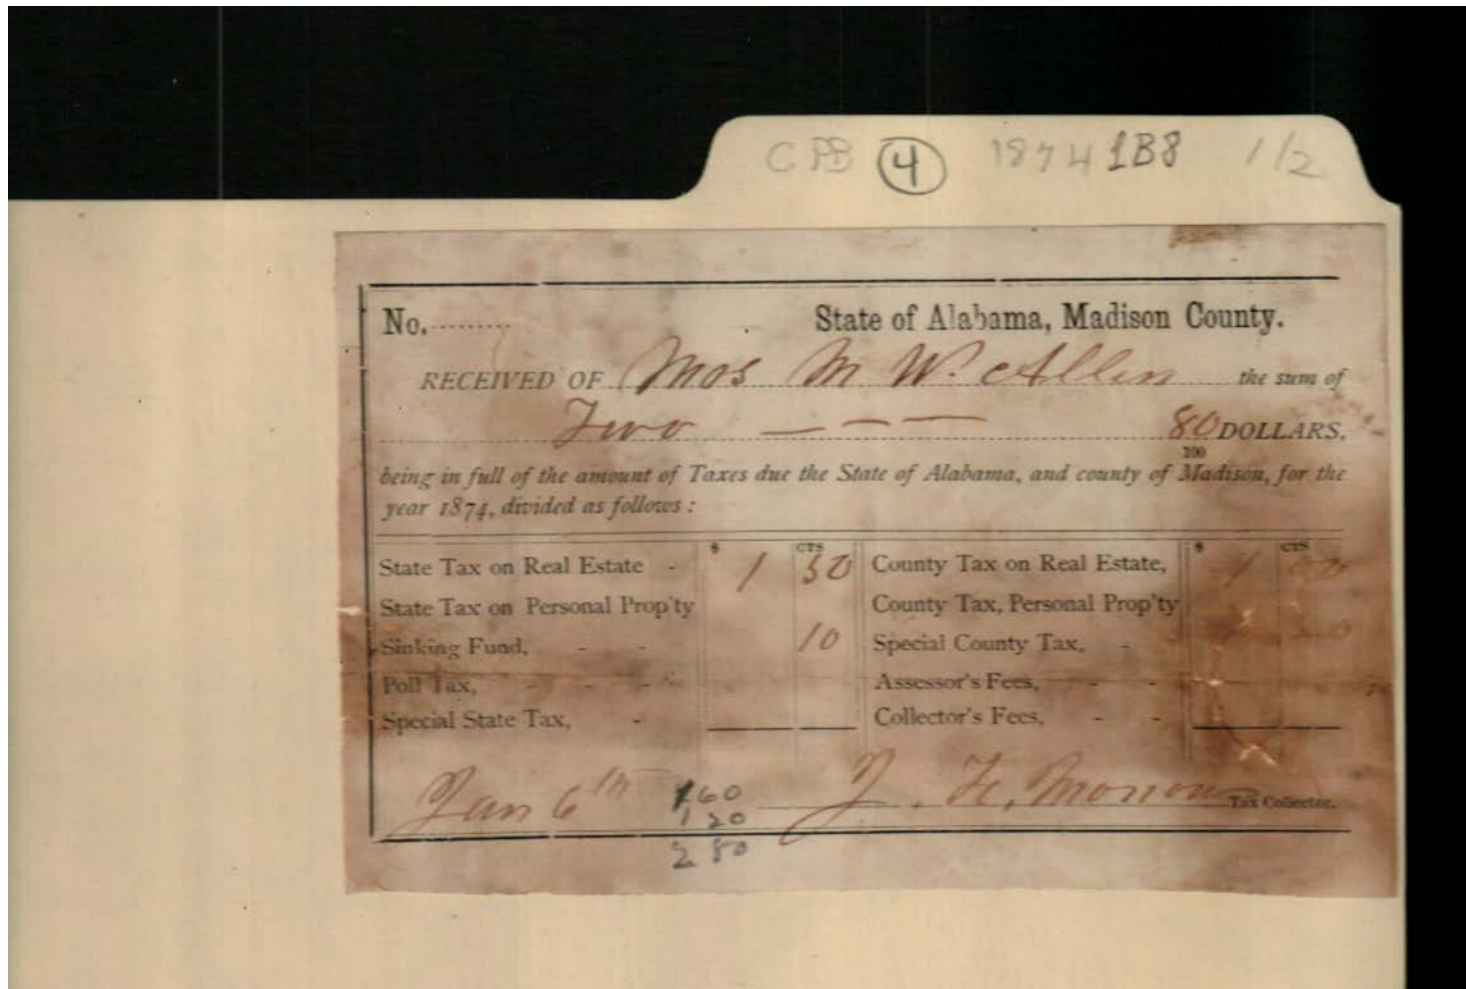 CPB 4 1874 1B8 1/2
No. State of Alabama, Madison County.
RECEIVED OF Mos M W. Allen the sum of
Two — — — 80 DOLLARS.
100
being in full of the amount of Taxes due the State of Alabama, and county of Madison, for the
year 1874, divided as follows:
$ CTS $ CTS
State Tax on Real Estate - 1 50 County Tax on Real Estate, 1 00
State Tax on Personal Prop'ty County Tax, Personal Prop'ty
Sinking Fund, - - 10 Special County Tax, - 20
Poll Tax, - - - Assessor's Fees, - -
Special State Tax, - Collector's Fees, - -
Jan 6th 160 J. H. Tax Collector.
1 20
2 80